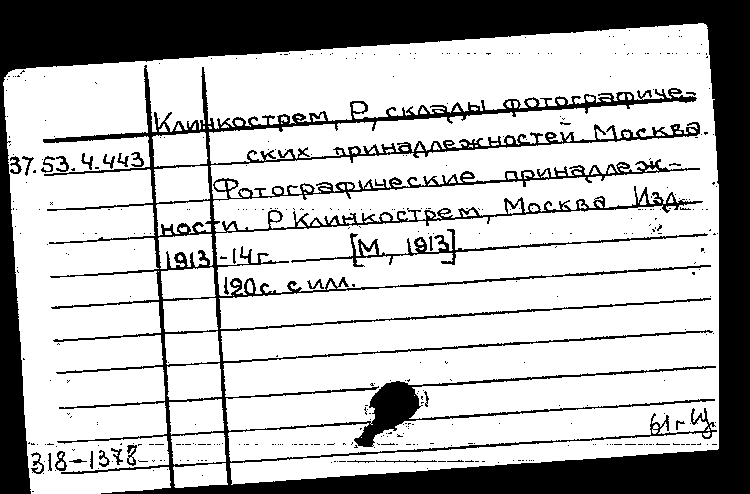 Клинкострем, Р., склады фотографиче-
37.53.4.443 ских принадлежностей. Москва.
Фотографические принадлеж-
ности. Р. Клинкострем, Москва Изд.
1913-14г. [М., 1913].
120с. с илл.
318-1378